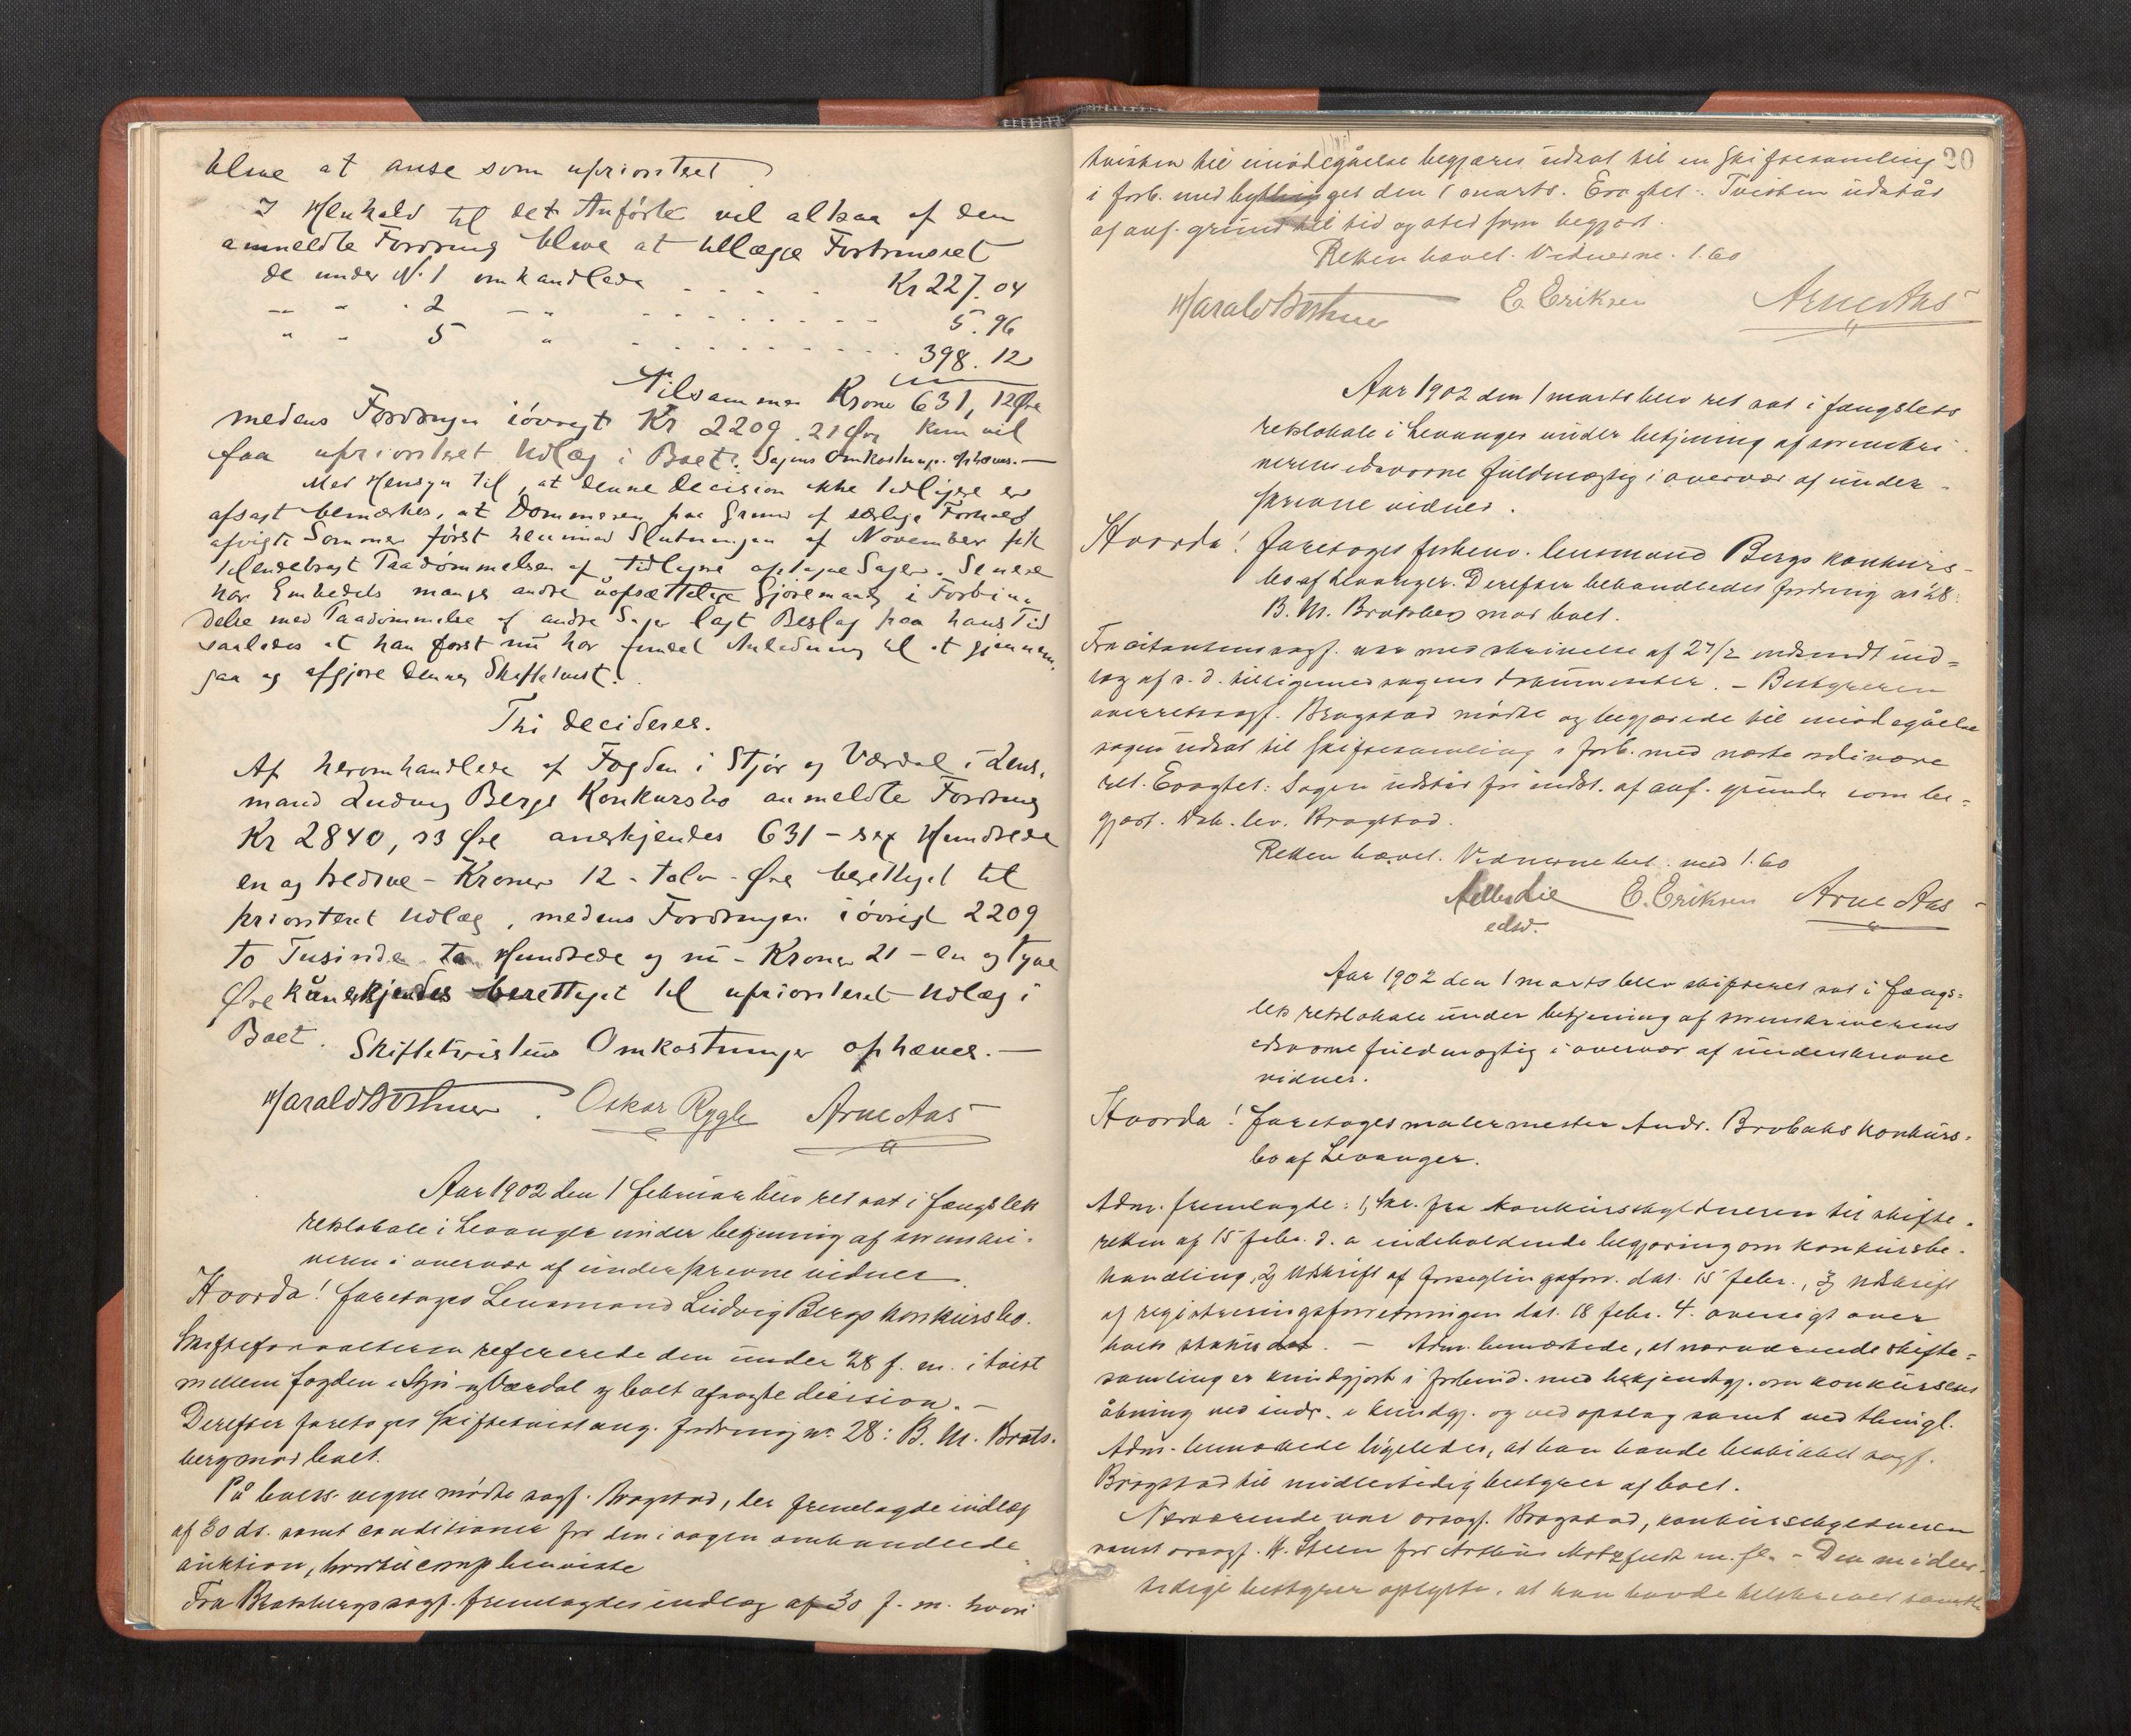 blive at anse som uprioriteret
I Henhold til det Anførte vil altsaa af den
anmeldte Fordring blive at tillægge Fortrinsret
de under N. 1 omhandlede . . . . . Kr 227.04
— " . 2 — " . . . . . . . . 5.96
" " 5 " . . . . . . . . 398.12
Tilsammen Kroner 631,12 Øre
medens Fordringen iøvrigt Kr 2209.21 Øre kun vil
faa uprioriteret Udlæg i Boet. Sagens Omkostninger ophæves. —
Med Hensyn til, at denne Decision ikke tidligere er
afsagt bemærkes, at Dommeren paa Grund af særlige Forhold
afvigte Sommer først henimod Slutningen af November fik
tilendebragt Paadømmelsen af tidligere optagne Sager. Senere
har Embedets mange andre uopsættelige Gjøremaal i Forbin-
delse med Paadømmelse af andre Sager lagt Beslag paa hans Tid
saaledes at han først nu har fundet Anledning til at gjennem-
gaa og afgjøre denne Skiftetvist.
Thi decideres.
Af heromhandlede af Fogden i Stjør og Værdal i Lens-
mand Ludvig Bergs Konkursbo anmeldte Fordring
Kr 2840, 33 Øre anerkjendes 631 – sex Hundrede
en og tredive – Kroner 12 – tolv – Øre berettiget til
prioriteret Udlæg, medens Fordringen iøvrigt 2209
to Tusinde to Hundrede og ni – Kroner 21 – en og tyve
Øre kun erkjendes berettiget til uprioriteret Udlæg i
Boet. Skiftetvistens Omkostninger ophæves. —
Harald Bothner . Oskar Rygh Arne Aas
Aar 1902 den 1 februar blev ret sat i fængslets
retslokale i Levanger under betjening af sorenskri-
veren i overvær af underskrevne vidner.
Hvorda! foretoges Lensmand Ludvig Bergs konkursbo.
Skifteforvalteren refererede den under 28 f. m. i tvist
mellem fogden i Stjør og Værdal og boet afsagte decision. —
Derefter foretoges skiftetvist ang. fordring no. 28: B. M. Brats-
berg mod boet.
På boets vegne mødte sagf. Bragstad, der fremlagde indlæg
af 30 ds. samt conditioner for den i sagen omhandlede
auktion, hvortil comp henviste
Fra Bratsbergs sagf. fremlagdes indlæg af 30 f. m. hvori
20
tvisten til imødegåelse begjæres udsat til en skiftesamling
i forb. med bythinget den 1 marts. Eragtet: Tvisten udstår
af anf. grund til tid og sted som begjært.
Retten hævet. Vidnerne. 1.60
Harald Bothner E. Eriksen Arne Aas
Aar 1902 den 1 marts blev ret sat i fængslets
retslokale i Levanger under betjening af sorenskri-
verens edsvorne fuldmægtig i overvær af under-
skrevne vidner.
Hvorda! foretoges forhenv. lensmand Bergs konkurs-
bo af Levanger. Derefter behandledes fordring no 28:
B. M. Bratsberg mod boet.
Fra citantens sagf. var med skrivelse af 27/2 indsendt ind-
læg af s. d. tilligemed sagens dokumenter. – Bestyreren
overretssagf. Bragstad mødte og begjærede til imødegåelse
sagen udsat til skiftesamling i forb. med næste ordinære
ret. Eragtet: Sagen udstår fri indst. af anf. grunde som be-
gjært. Dok. lev. Bragstad.
Retten hævet. Vidnerne bet. med 1.60
E. Eriksen Arne Aas
edsv.
Aar 1902 den 1 marts blev skifteret sat i fængs-
lets retslokale under betjening af sorenskriverens
edsvorne fuldmægtig i overvær af underskrevne
vidner.
Hvorda! foretoges malermester Andr. Brobaks konkurs-
bo af Levanger.
Adm. fremlagde: 1, Skr. fra konkursskyldneren til skifte-
retten af 15 febr. d. a indeholdende begjæring om konkursbe-
handling, 2, Udskrift af forseglingsforr. dat. 15 febr., 3, Udskrift
af registreringsforretningen dat. 18 febr. 4. oversigt over
boets status. – Adm. bemærkede, at nærværende skifte-
samling er kundgjort i forbind. med bekjendtgj. om konkursens
åbning ved indr. i kundgj. og ved opslag samt ved thingl.
Adm. bemærkede ligeledes, at han havde beskikket sagf.
Bragstad til midlertidig bestyrer af boet.
Nærværende var orsagf. Bragstad, konkursskyldneren
samt orsagf. H. Steen for Arthur Motzfeldt m. fl. – Den midler-
tidige bestyrer oplyste, at han havde tilskrevet samtlige